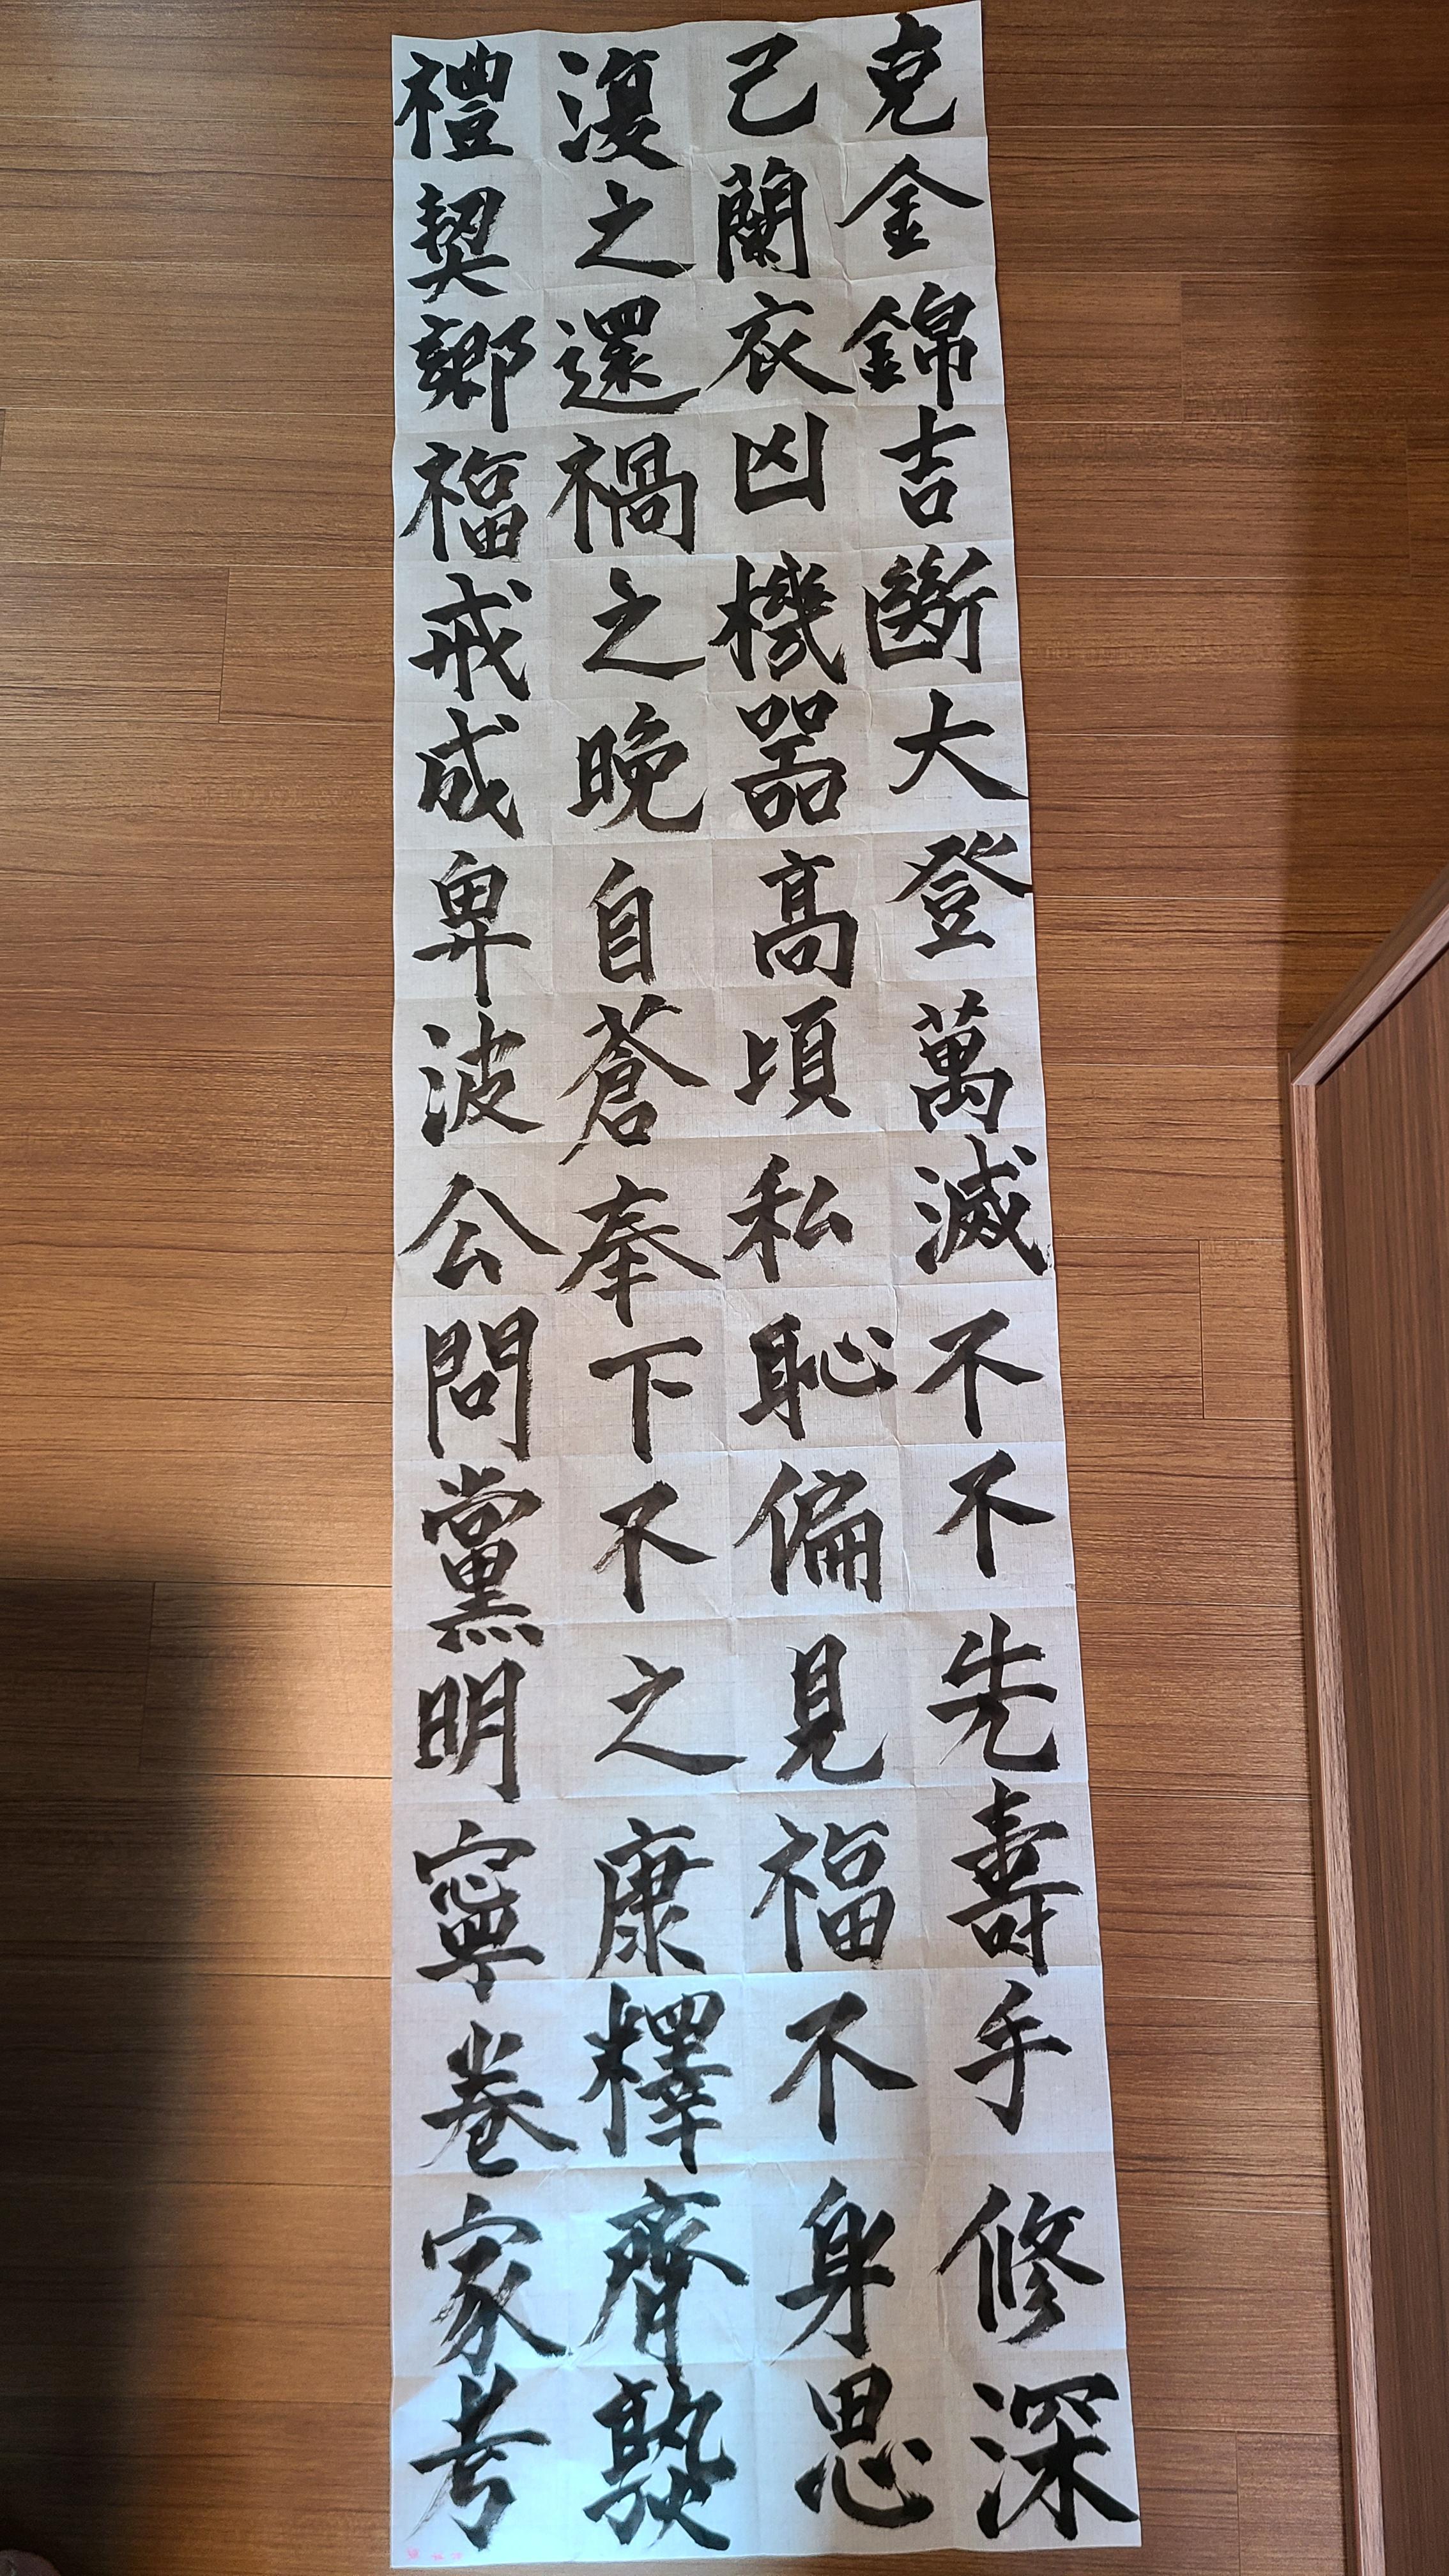 克己復禮
金蘭之契
錦衣還鄉
吉凶禍福
斷機之戒
大器晚成
登高自卑
萬頃蒼波
滅私奉公
不恥下問
不偏不黨
先見之明
壽福康寧
手不釋卷
修身齊家
深思熟考